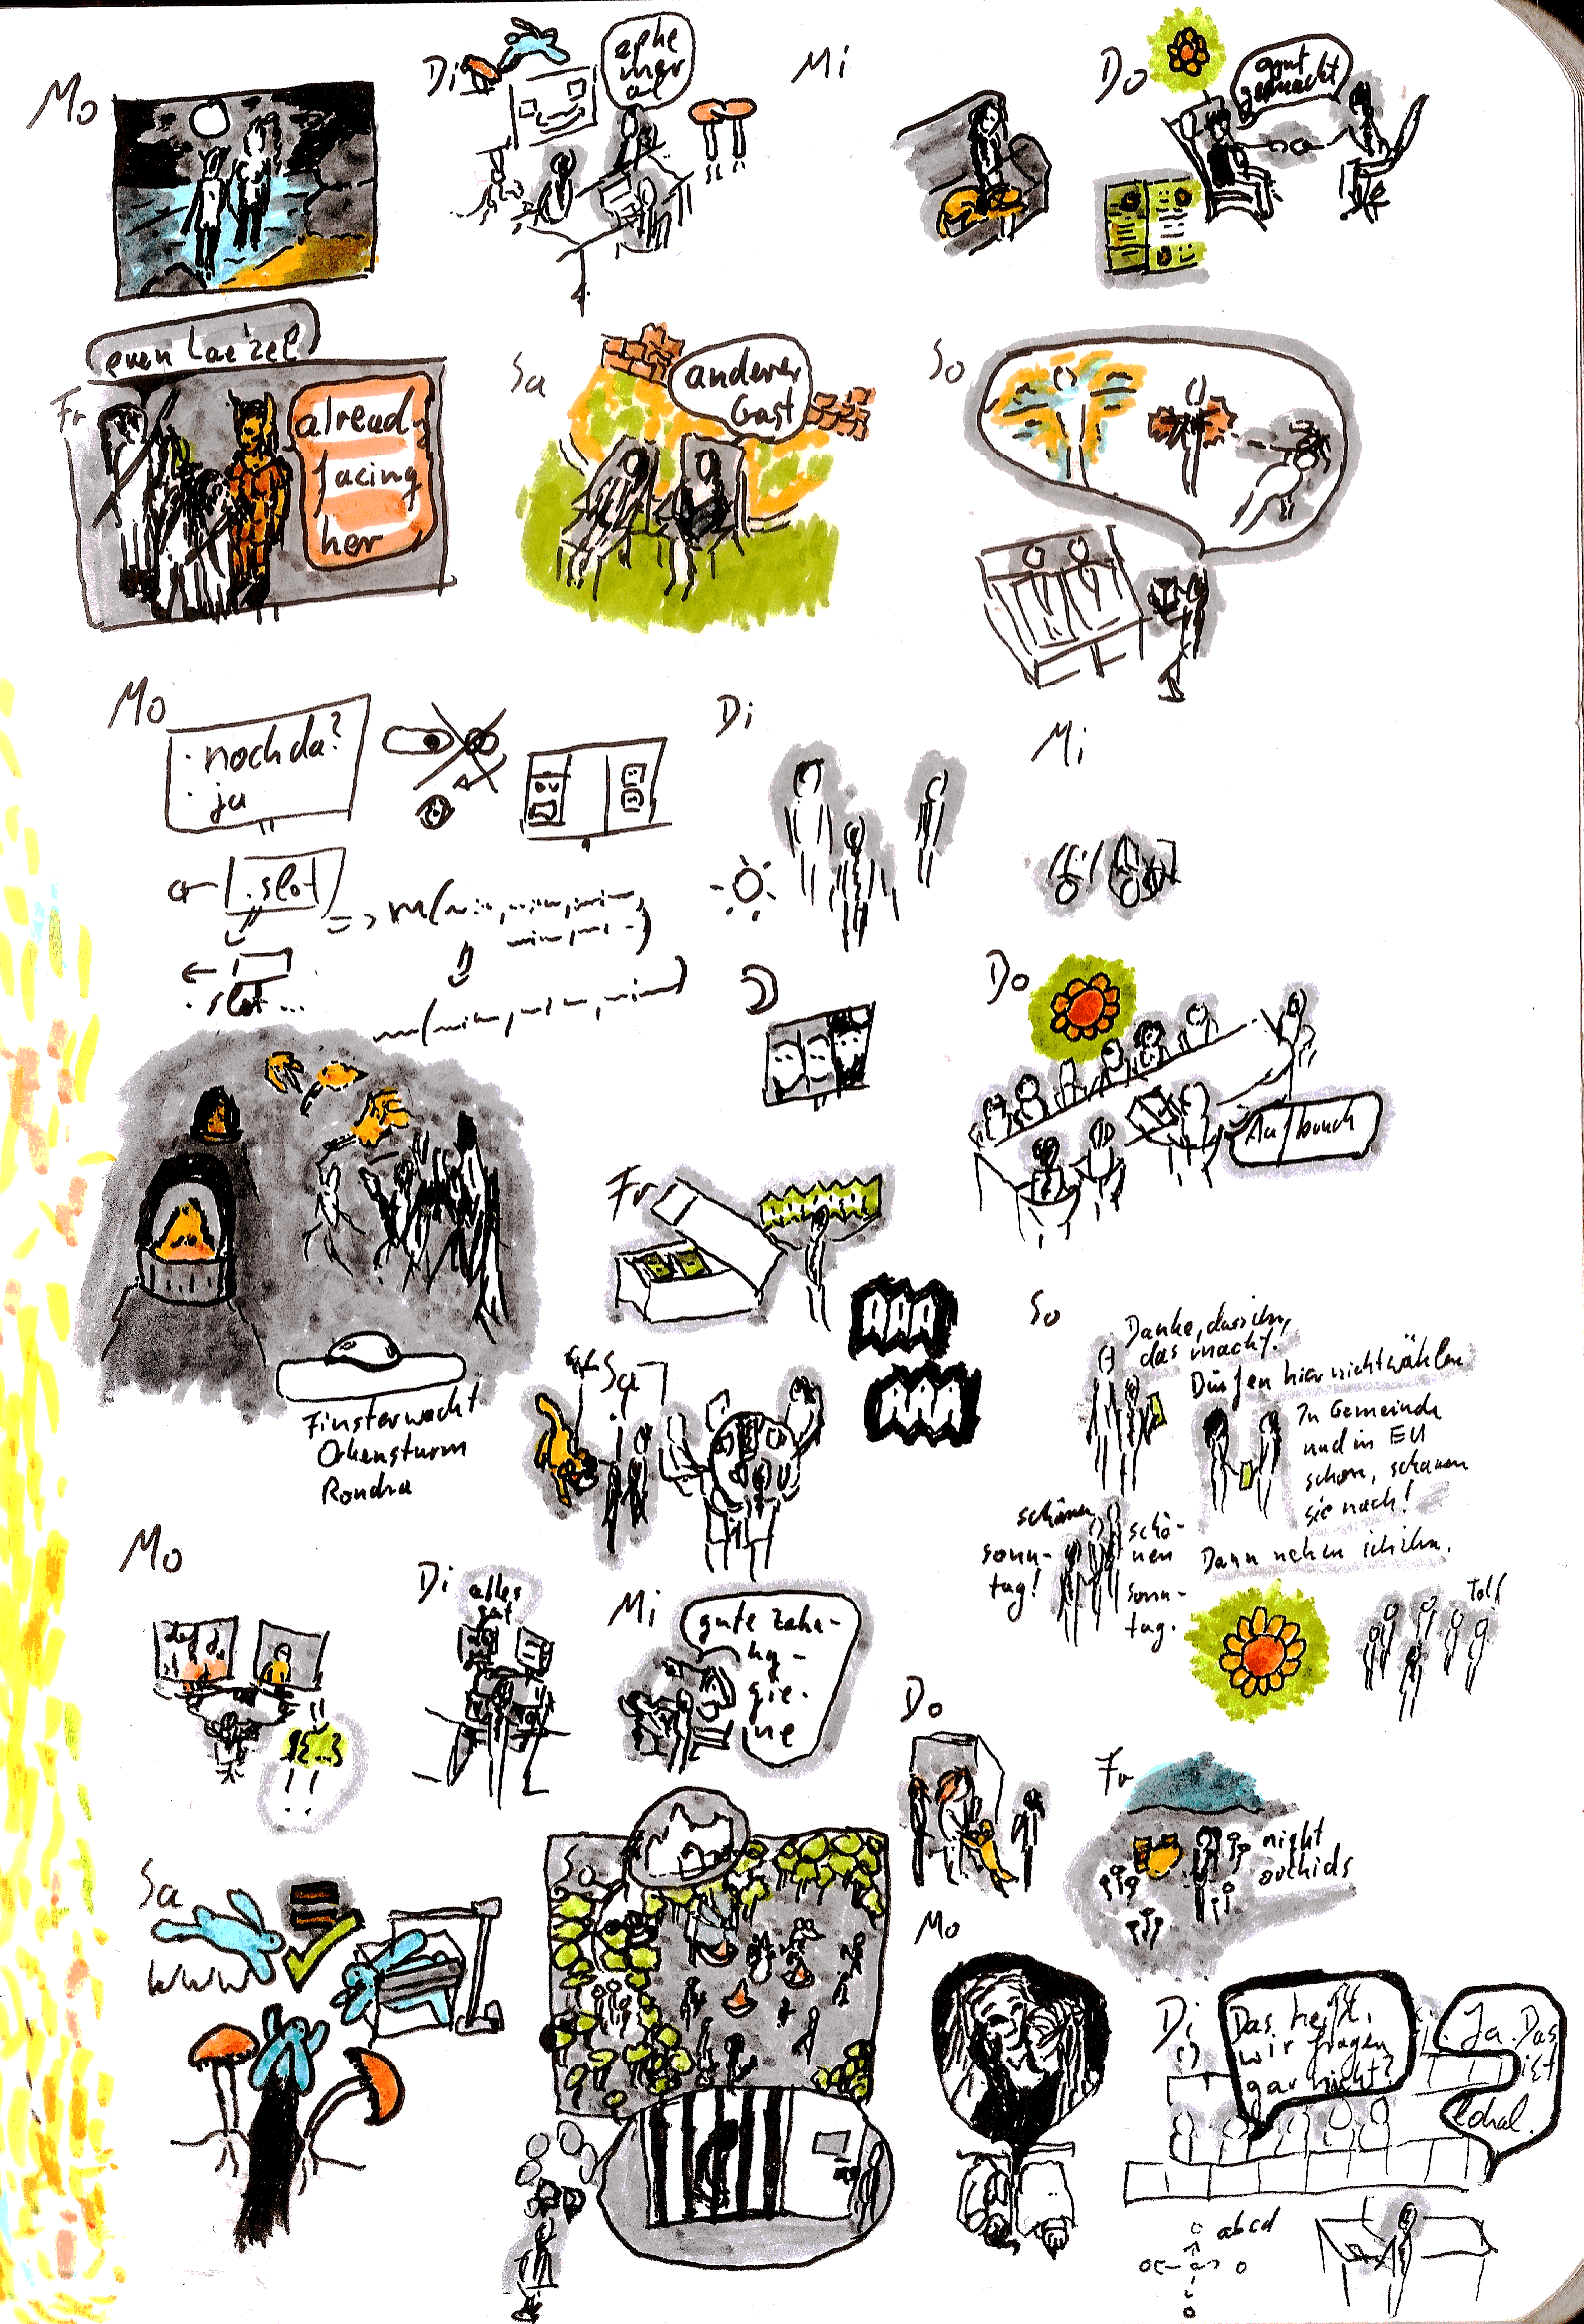 Mo
Di
ephe
mer
al
Mi
Do
gut
gemacht
Fr
even Lae'zel
already
facing
her
Sa
anderer
Gast
So
Mo
· noch da?
· ja
.slot
.slot...
Di
Mi
Do
Aufbruch
Finsterwacht
Orkensturm
Rondra
Fr
AAA
AAA
Sa
So
Danke, dass ihr
das macht.
Dürfen hier nicht wählen
In Gemeinde
und in EU
schon, schauen
sie nach!
Dann nehm ich ihn.
schönen
sonn-
tag!
schö-
nen
sonn-
tag.
Toll
Mo
Di
alles
gut
Mi
gute zahn-
hy-
gie-
ne
Do
Fr
night
orchids
Sa
www
So
Mo
Di
Das heißt,
wir fragen
gar nicht?
Ja. Das
ist
lokal.
abcd